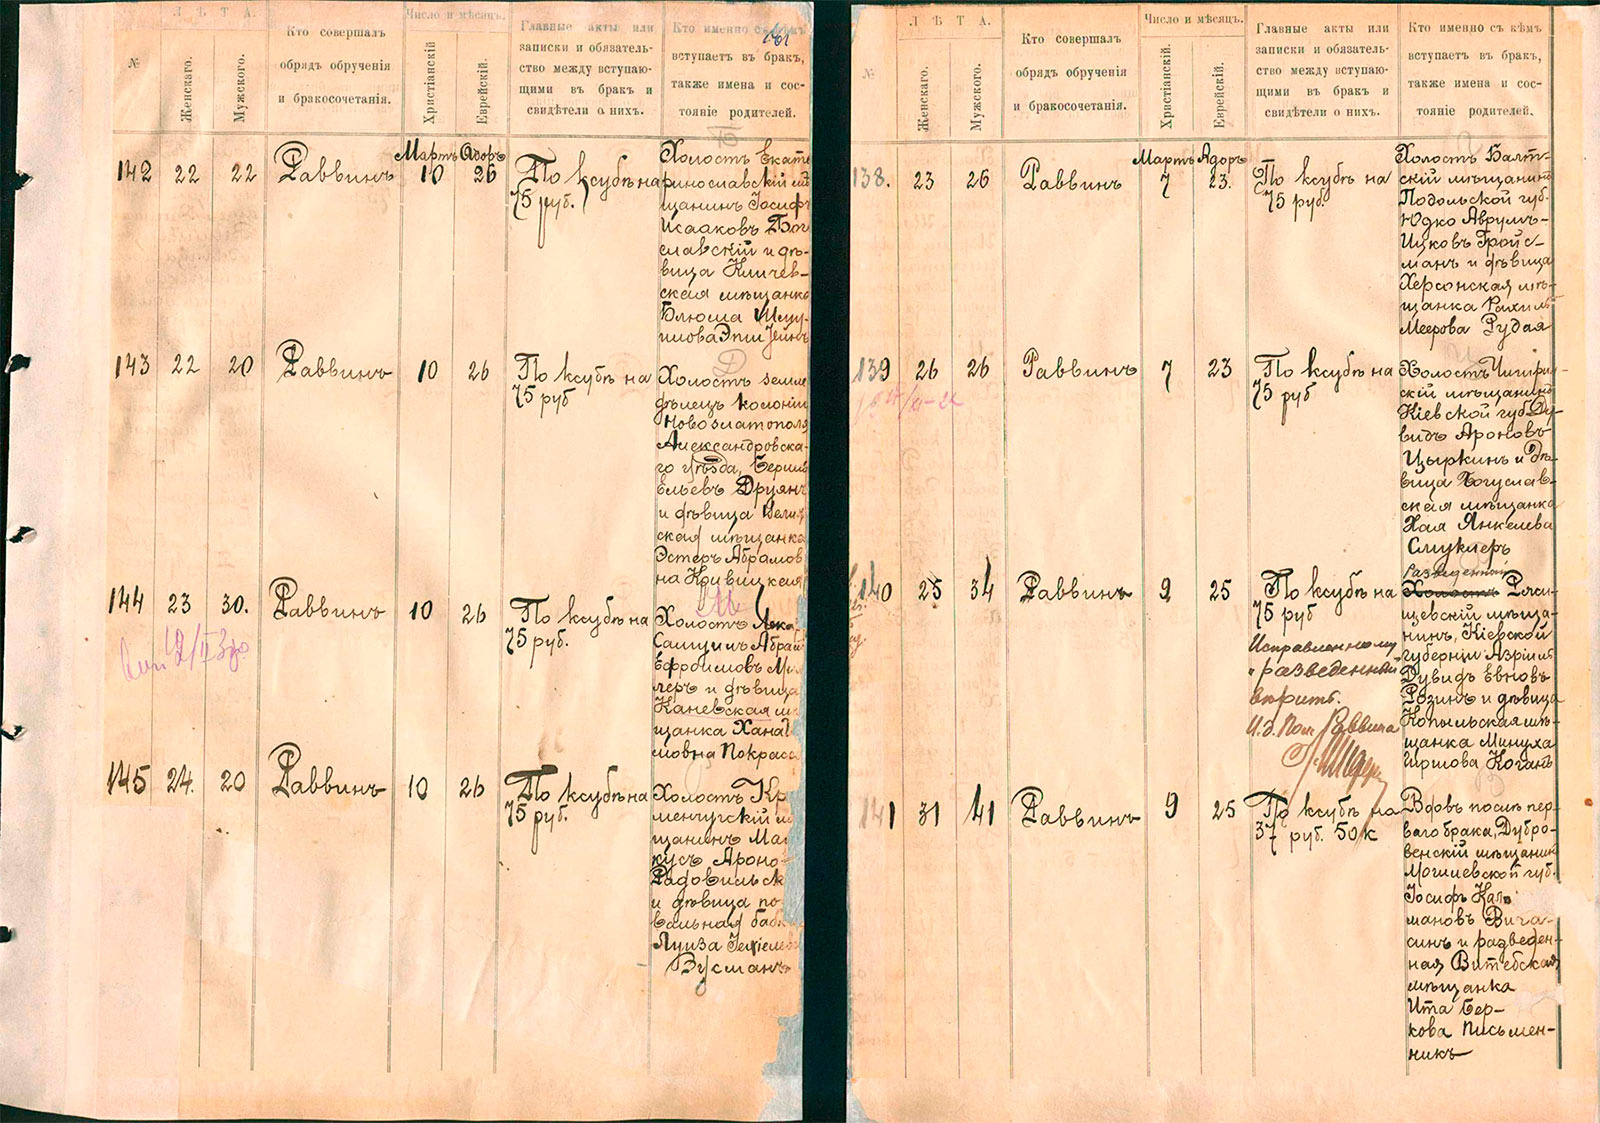 161
№
ЛѢТА.
Женскаго.
Мужского.
Кто совершалъ
обрядъ обрученія
и бракосочетанія.
Число и мѣсяцъ.
Христіанскій
Еврейскій.
Главные акты или
записки и обязатель-
ство между вступаю-
щими въ бракъ и
свидѣтели о нихъ.
Кто именно съ кѣмъ
вступаетъ въ бракъ,
также имена и сос-
тояніе родителей.
Мартъ Адоръ
142 22 22 Раввинъ 10 26
По ксубѣ на
75 руб.
Холостъ Екате
ринославскій мѣ
щанинъ Іосифъ
Исааковъ Бог
славскій и дѣ-
вица Кличев-
ская мѣщанка
Блюма Шму
илова
143 22 20 Раввинъ 10 26
По ксубѣ на
75 руб
Холостъ земле
дѣлецъ колоніи
Новозлатополя
Александровска-
го уѣзда, Берши
Ельевъ Друянъ
и дѣвица Велиж
ская мѣщанка
Эстеръ Абрамов
на Кривицкая
144 23 30. Раввинъ 10 26
12/II 30
По ксубѣ на
75 руб.
Холостъ
Самуилъ Абрам
Ефроимовъ Мил
леръ и дѣвица
Каневская мѣ
щанка Хана
мовна Покраса
145 24. 20 Раввинъ 10 26
По ксубѣ на
75 руб.
Холостъ Кр
менчугскій мѣ
щанинъ Мар
кусъ Ароно-
Радовильск
и дѣвица по-
вальная бабк
Луиза Іехіелев
Зусманъ
№
ЛѢТА.
Женскаго.
Мужского.
Кто совершалъ
обрядъ обрученія
и бракосочетанія.
Число и мѣсяцъ.
Христіанскій.
Еврейскій.
Главные акты или
записки и обязатель-
ство между вступаю-
щими въ бракъ и
свидѣтели о нихъ.
Кто именно съ кѣмъ
вступаетъ въ бракъ,
также имена и сос-
тояніе родителей.
Мартъ Адоръ
138. 23 26 Раввинъ 7 23.
По ксубѣ на
75 руб.
Холостъ Балт-
скій мѣщанинъ
Подольской губ.
Юдко Аврумъ-
Ицковъ Гройс-
манъ и дѣвица
Херсонская мѣ-
щанка Рахиль
Меерова Рудая
139 26 26 Раввинъ 7 23
По ксубѣ на
75 руб
Холостъ Чигирин-
скій мѣщанинъ
Кіевской губ. Ду-
видъ Ароновъ
Цыркинъ и дѣ-
вица Богуслав-
ская мѣщанка
Хая Янкелева
Смуклеръ
140 25 34 Раввинъ 9 25
По ксубѣ на
75 руб
Исправленному
"разведенный"
вѣрить.
И.д. Пом. Раввина
Разведенный
Холостъ Ряси-
щевскій мѣща-
нинъ, Кіевской
губерніи Азріилъ
Дувидъ Евновъ
Розинъ и дѣвица
Копыльская мѣ-
щанка Минуха
Гиршова Коганъ
141 31 41 Раввинъ 9 25
По ксубѣ на
37 руб. 50 к
Вдовъ послѣ пер-
ваго брака, Дубро-
венскій мѣщанинъ
Могилевской губ.
Іосифъ Кал-
мановъ Вига-
синъ и разведен-
ная Витебская
мѣщанка
Ита Бер-
кова Письмен-
никъ